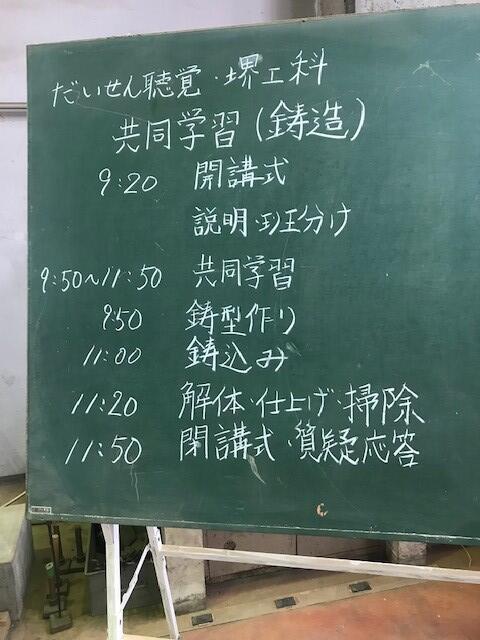 だいせん聴覚・堺工科
共同学習(鋳造)
9:20 開講式
説明・班分け
9:50〜11:50 共同学習
9:50 鋳型作り
11:00 鋳込み
11:20 解体・仕上げ・掃除
11:50 閉講式・質疑応答